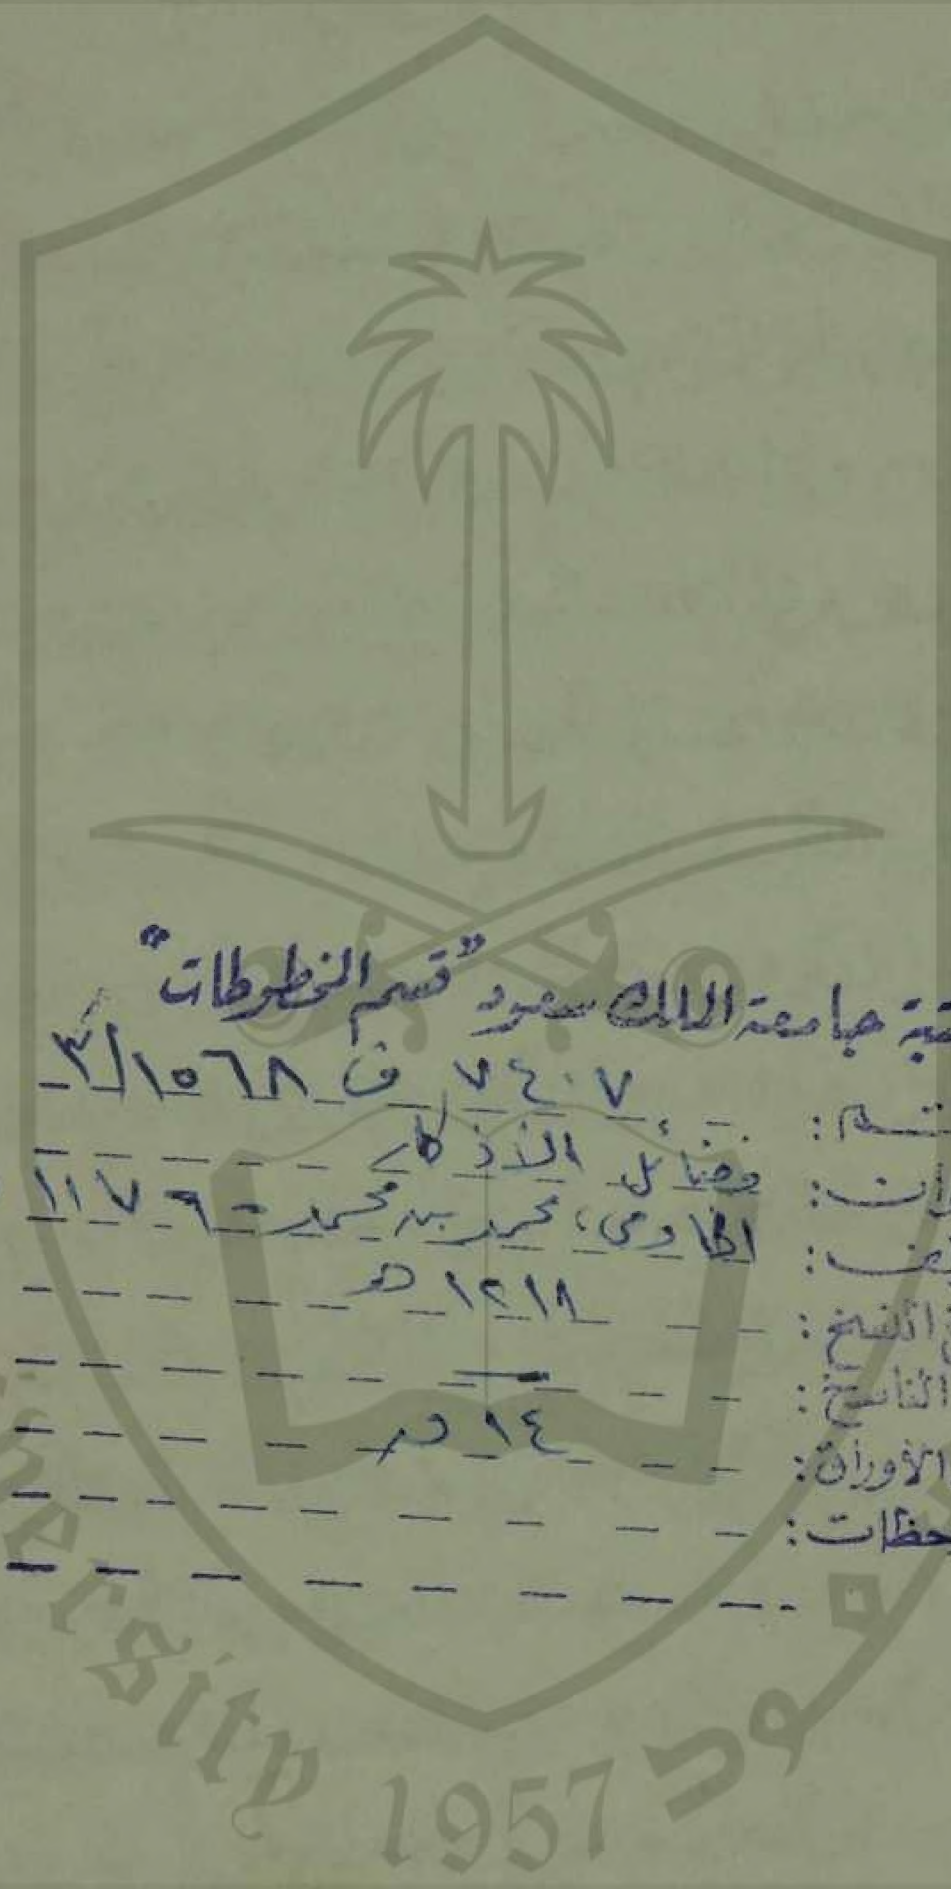 جامعة الملك سعود "قسم المخطوطات"
٧٤٠٧ ف ١٥٦٨/٣
فضائل الأذكار
محمد بن محمد - ١١٧٦
النسخ: ١٢١٨ هـ
الناسخ: —
الأوراق: ١٤ ور
حظات:
ersity 1957 سعود